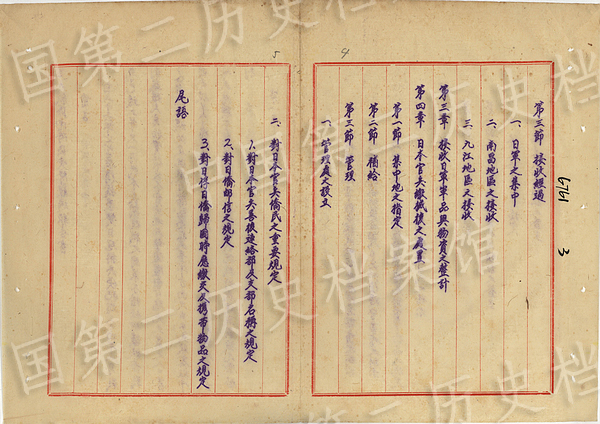 第三節 接收經過
一、日軍之集中
二、南昌地區之接收
三、九江地區之接收
第三章 接收日軍軍品與物資之整計
第四章 日本官兵繳械後之處置
第一節 集中地之指定
第二節 補給
第三節 管理
一、管理處之設立
4
6761
3
二、對日本官兵僑民之重要規定
1、對日本官兵善後連絡部及支部名稱之規定
2、對日僑郵信之規定
3、對日俘日僑歸國時應繳天及携帶物品之規定
尾語
5
中国第二历史档案馆